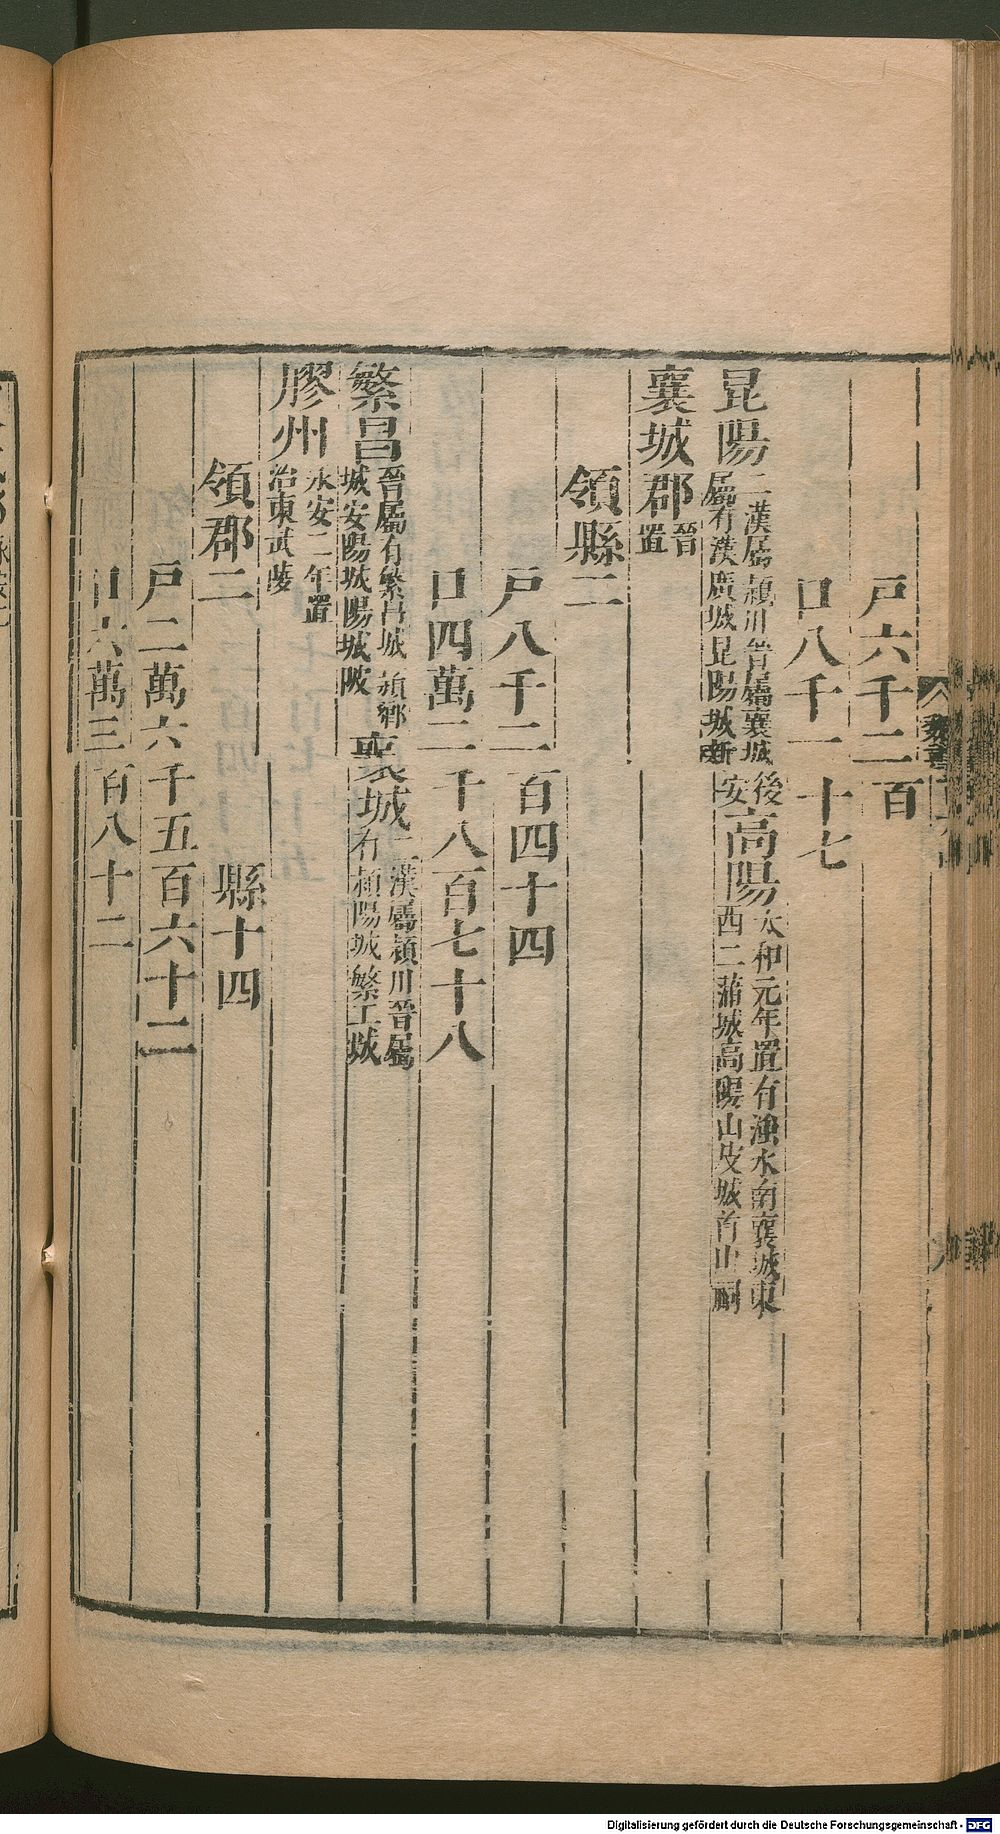 戸六千二百
口八千一十七
昆陽二漢屬潁川晉屬襄城後屬有漢廣城昆陽城新安高陽太和元年置有滍水南襄城東西二蒲城高陽山皮城首山祠
襄城郡晉置
領縣二
戸八千二百四十四
口四萬二千八百七十八
繁昌晉屬有繁昌城潁鄉城安陽城陽城陂襄城二漢屬潁川晉屬有潁陽城繁丘城
膠州永安二年置治東武陵
領郡三縣十四
戸二萬六千五百六十二
口六萬三百八十二
Digitalisierung gefördert durch die Deutsche Forschungsgemeinschaft - DFG